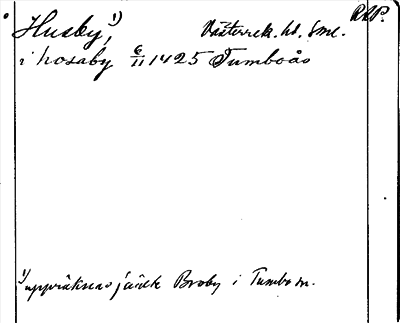 RAP.
Husby,¹⁾ Västerrek. hd. Sml.
i hosaby 6/11 1425 Tumboås
¹⁾ uppräknas jämte Broby i Tumbo sn.